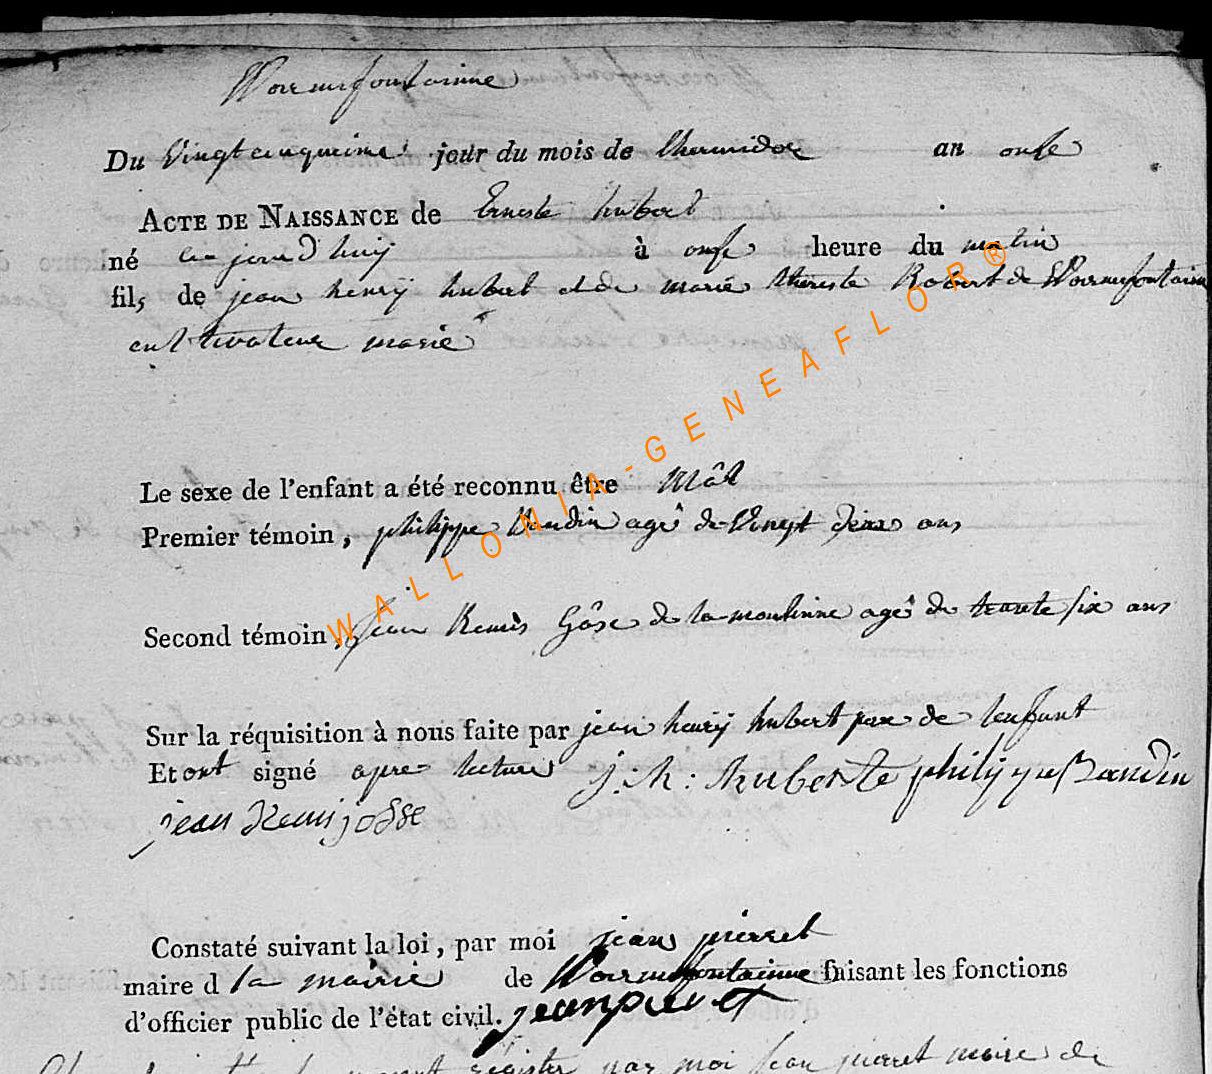 Wormefontainne
Du Vingt cinquieme jour du mois de thermidor an onse
ACTE DE NAISSANCE de Erneste hubert
né ce jour d'huij à onse heure du matin
fils de jean henrÿ hubert et de marie thereste Robert de Wormefontainne
cultivateur marié
Le sexe de l'enfant a été reconnu être Mâl
Premier témoin, philippe Baudin agé de Vingt deux ans
Second témoin, jean Remis Gôse de la moulinne agé de trante six ans
Sur la réquisition à nous faite par jean henrÿ hubert pere de lenfant
Et ont signé apres lecture j: h: huberte philippe Baudin
jean Remi josse
Constaté suivant la loi, par moi jean pierret
maire d la mairie de Wormefontainne faisant les fonctions
d'officier public de l'état civil. jean pierret
register par moi jean pierret maire de
WALLONIA-GENEAFLOR®